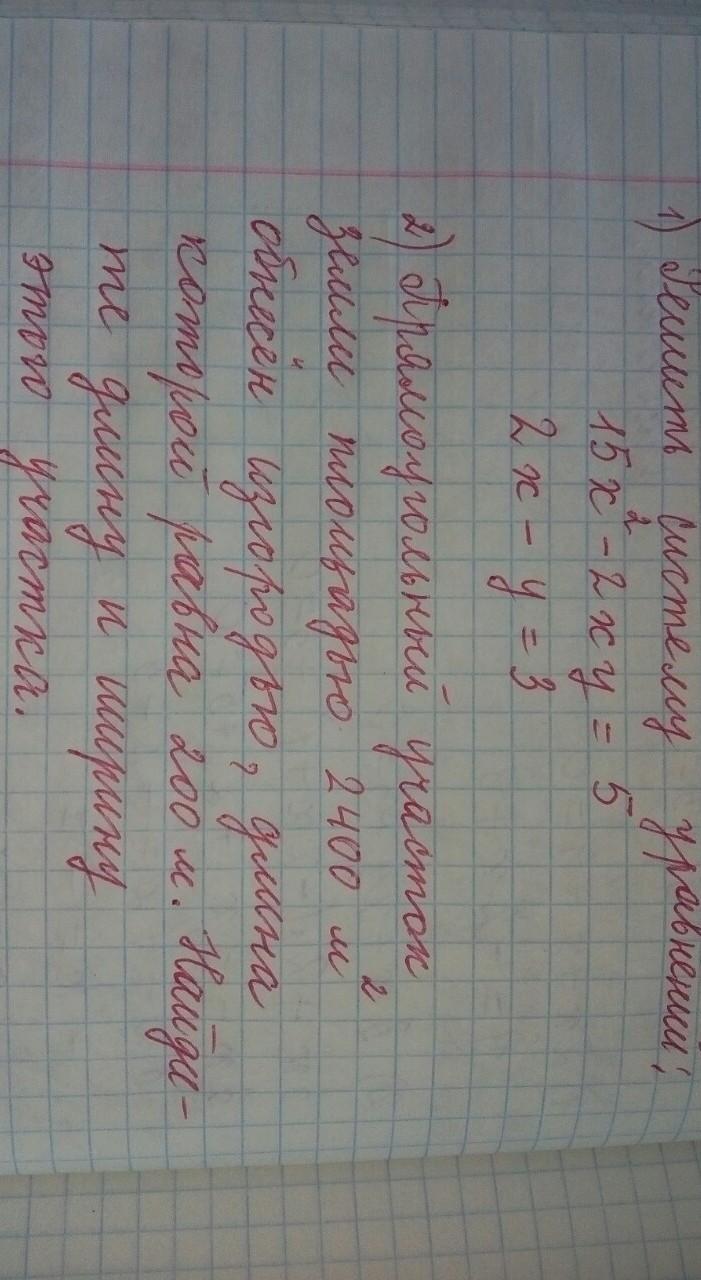 1) Решить систему уравнений:
15x² - 2xy = 5
2x - y = 3
2) Прямоугольный участок
земли площадью 2400 м²
обнесён изгородью, длина
которой равна 200 м. Найди-
те длину и ширину
этого участка.